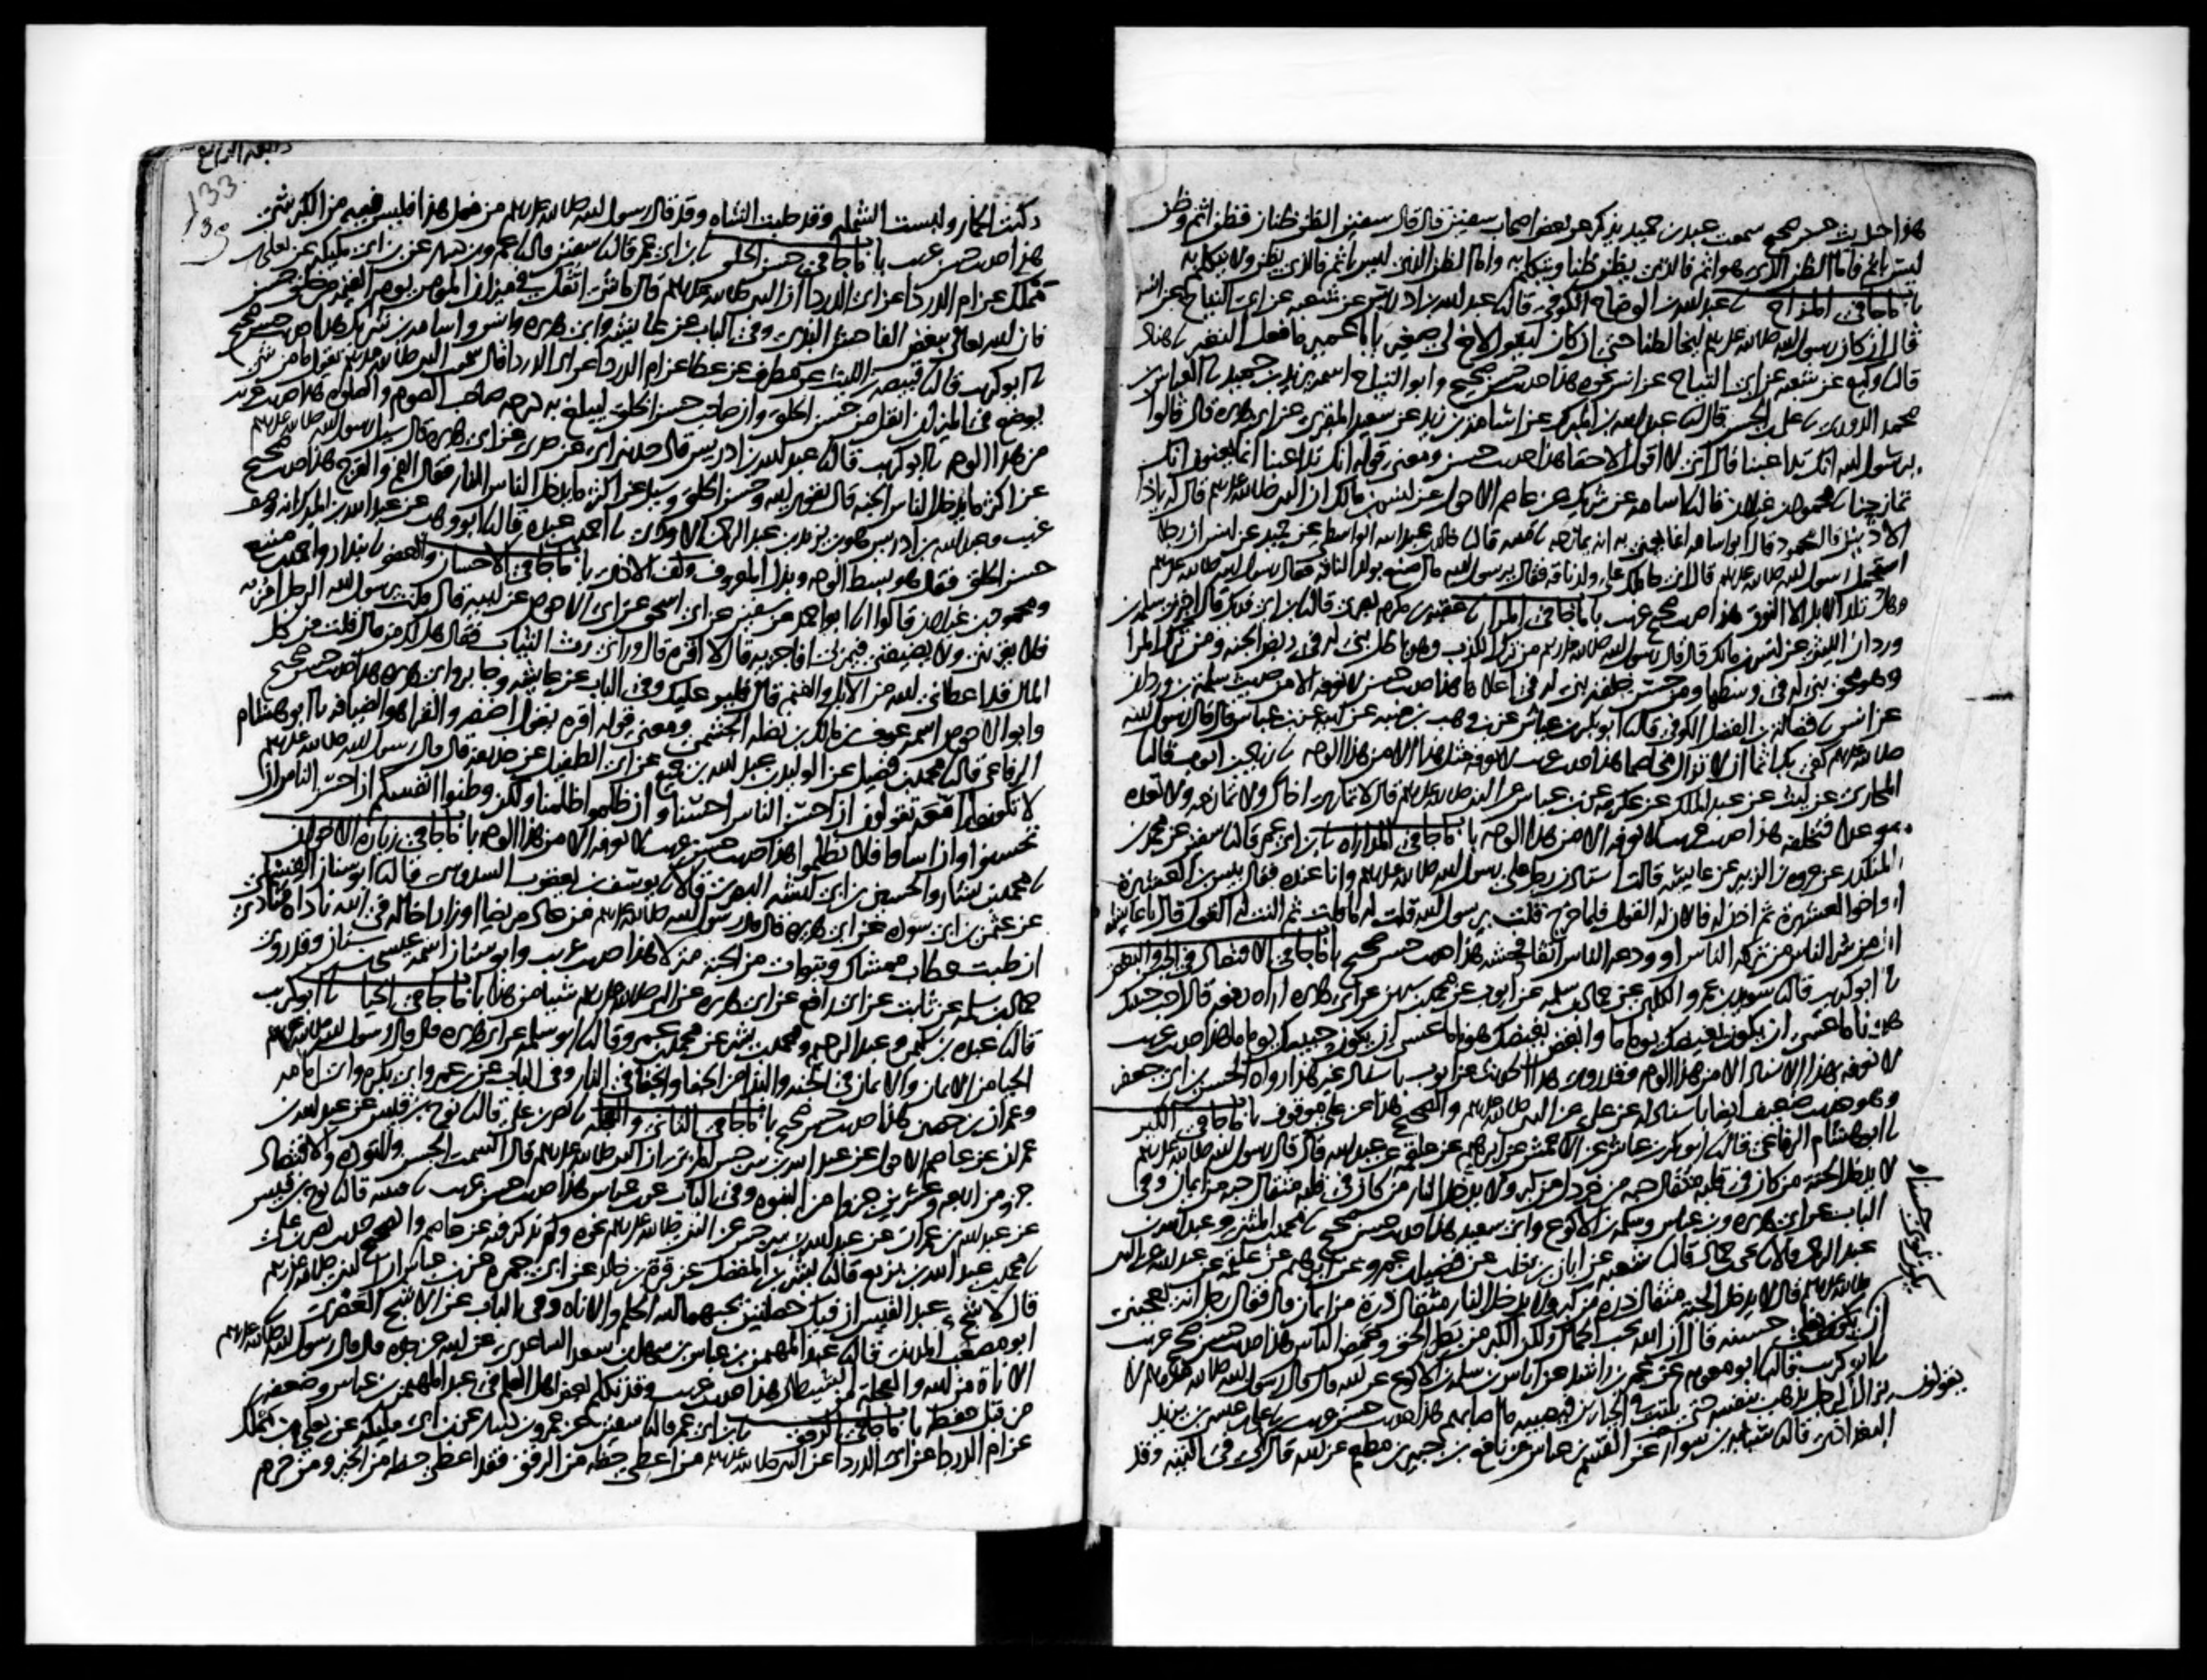 هذا حديث حسن صحيح سمعت عبد بن حميد يذكر عن بعض اصحاب سفين قال قال سفين الظن ظنان فظن اثم وظن
ليس باثم فاما الظن الذي هو اثم فالذي يظن ظنا ويتكلم به واما الظن الذي ليس باثم فالذي يظن ولا يتكلم به
باب ما جا في المزاح عبد الله بن الوضاح الكوفي قال عبد الله بن ادريس عن شعبه عن ابي التياح عن انس
قال ان كان رسول الله صلى الله عليه وسلم ليخالطنا حتى ان كان ليقول لاخ لي صغير يا با عمير ما فعل النغير هناد
قال وكيع عن شعبه عن ابي التياح عن انس نحوه هذا حديث حسن صحيح وابو التياح اسمه يزيد بن حميد العباس بن
محمد الدوري علي بن الحسن قال عبد الله بن المبارك عن اسامه بن زيد عن سعيد المقبري عن ابي هريره قال قالوا
يرسول الله انك تداعبنا قال اني لا اقول الا حقا هذا حديث حسن ومعنى قوله انك تداعبنا انما يعنون انك
تمازحنا محمود بن غيلان قال اسامه عن شريك عن عاصم الاحول عن انس بن مالك ان النبي صلى الله عليه وسلم قال له ياذا
الاذنين قال محمود قال ابو اسامه انما يعني به انه يمازحه قتيبه قال خالد بن عبد الله الواسطي عن حميد عن انس ان رجلا
استحمل رسول الله صلى الله عليه وسلم قال اني حاملك على ولد ناقه فقال يرسول الله ما اصنع بولد الناقه فقال رسول الله صلى الله عليه وسلم
وهل تلد الابل الا النوق هذا حديث صحيح غريب باب ما جا في المرا عقبه بن مكرم البصري قال ابن ابي فديك قال اخبرني سلمه بن
وردان الليثي عن انس بن مالك قال قال رسول الله صلى الله عليه وسلم من ترك الكذب وهو باطل بني له في ربض الجنه ومن ترك المرا
وهو محق بني له في وسطها ومن حسن خلقه بني له في اعلاها هذا حديث حسن لا نعرفه الا من حديث سلمه بن وردان
عن انس فضاله بن الفضل الكوفي قال ابو بكر بن عياش عن بن وهب بن منبه عن ابيه عن بن عباس قال قال رسول الله
صلى الله عليه وسلم كفى بك اثما ان لا تزال مخاصما هذا حديث غريب لا نعرفه مثل هذا الا من هذا الوجه زياد بن ايوب قال
المحاربي عن ليث عن عبد الملك عن عكرمه عن بن عباس عن النبي صلى الله عليه وسلم قال لا تمار اخاك ولا تمازحه ولا تعده
موعدا فتخلفه هذا حديث غريب لا نعرفه الا من هذا الوجه باب ما جا في المداراه بن ابي عمر قال سفين عن محمد بن
المنكدر عن عروه بن الزبير عن عايشه قالت استاذن رجل على رسول الله صلى الله عليه وسلم وانا عنده فقال بيس بن العشيرة
او اخو العشيرة ثم اذن له فالان له القول فلما خرج قلت يرسول الله قلت له ما قلت ثم النت له القول قال يا عايشه
ان من شر الناس من تركه الناس او ودعه الناس اتقا فحشه هذا حديث حسن صحيح باب ما جا في الاقتصاد في الحب والبغض
ابو كريب قال سويد بن عمرو الكلبي عن حماد بن سلمه عن ايوب عن محمد بن سيرين عن ابي هريره اراه رفعه قال احبب حبيبك
هونا ما عسى ان يكون بغيضك يوما ما وابغض بغيضك هونا ما عسى ان يكون حبيبك يوما ما هذا حديث غريب
لا نعرفه بهذا الاسناد الا من هذا الوجه وقد روي هذا الحديث عن ايوب باسناد غير هذا رواه الحسن بن ابي جعفر
وهو حديث ضعيف ايضا باسناد له عن علي عن النبي صلى الله عليه وسلم والصحيح هذا عن علي موقوف باب ما جا في الكبر
ابو هشام الرفاعي قال ابو بكر بن عياش عن الاعمش عن ابرهيم عن علقمه عن عبد الله قال قال رسول الله صلى الله عليه وسلم
لا يدخل الجنة من كان في قلبه مثقال حبه من خردل من كبر ولا يدخل النار من كان في قلبه مثقال حبه من ايمان وفي
الباب عن ابي هريره وبن عباس وسلمه بن الاكوع وابي سعيد هذا حديث حسن صحيح محمد بن المثنى وعبد الله بن
عبد الرحمن قالا يحيى بن حماد قال شعبه عن ابان بن تغلب عن فضيل بن عمرو عن ابرهيم عن علقمه عن عبد الله عن النبي
صلى الله عليه وسلم قال لا يدخل الجنة مثقال ذرة من كبر ولا يدخل النار مثقال ذرة من ايمان قال فقال رجل انه يعجبني
ان يكون ثوبي حسنا ونعلي حسنه قال ان الله يحب الجمال ولكن الكبر من بطر الحق وغمص الناس هذا حديث حسن صحيح غريب
ابو كريب قال ابو معويه عن عمر بن راشد عن اياس بن سلمه بن الاكوع عن ابيه قال قال رسول الله صلى الله عليه وسلم لا
يزال الرجل يذهب بنفسه حتى يكتب في الجبارين فيصيبه ما اصابهم هذا حديث حسن غريب علي بن عيسى بن يزيد
البغدادي قال شبابه بن سوار عن القسم بن عباس عن نافع بن جبير بن مطعم عن ابيه قال يقولون في التيه وقد
ركبت الحمار ولبست الشمله وقد حلبت الشاه وقد قال رسول الله صلى الله عليه وسلم من فعل هذا فليس فيه من الكبر شي
هذا حديث حسن غريب باب ما جا في حسن الخلق بن ابي عمر قال سفين قال عمرو بن دينار عن بن ابي مليكه عن يعلى بن
مملك عن ام الدردا عن ابي الدردا ان النبي صلى الله عليه وسلم قال ما شي اثقل في ميزان المومن يوم القيمه من خلق حسن
فان الله تعالى يبغض الفاحش البذي وفي الباب عن عايشه وابي هريره وانس واسامه بن شريك هذا حديث حسن صحيح
ابو كريب قال قبيصه بن الليث عن مطرف عن عطا عن ام الدردا عن ابي الدردا قال سمعت النبي صلى الله عليه وسلم يقول ما من شي
يوضع في الميزان اثقل من حسن الخلق وان صاحب حسن الخلق ليبلغ به درجه صاحب الصوم والصلوه هذا حديث غريب
من هذا الوجه ابو كريب قال عبد الله بن ادريس قال حدثني ابي عن جدي عن ابي هريره قال سيل رسول الله صلى الله عليه وسلم
عن اكثر ما يدخل الناس الجنه قال تقوى الله وحسن الخلق وسيل عن اكثر ما يدخل الناس النار فقال الفم والفرج هذا حديث صحيح
غريب وعبد الله بن ادريس هو بن يزيد بن عبد الرحمن الاودي احمد بن عبده قال ابو وهب عن عبد الله بن المبارك انه وصف
حسن الخلق فقال هو بسط الوجه وبذل المعروف وكف الاذى باب ما جا في الاحسان والعفو بندار واحمد بن منيع
ومحمود بن غيلان قالوا ابو احمد عن سفين عن ابي اسحق عن ابي الاحوص عن ابيه قال قلت يرسول الله الرجل امر به
فلا يقريني ولا يضيفني فيمر بي افاجزيه قال لا اقره قال وراني رث الثياب فقال هل لك من مال قلت من كل
المال قد اعطاني الله من الابل والغنم قال فلير عليك وفي الباب عن عايشه وجابر وابي هريره هذا حديث حسن صحيح
وابو الاحوص اسمه عوف بن مالك بن نضله الجشمي ومعنى قوله اقره يقول اضفه والقرا هو الضيافه ابو هشام
الرفاعي قال محمد بن فضيل عن الوليد بن عبد الله بن جميع عن ابي الطفيل عن حذيفه قال قال رسول الله صلى الله عليه وسلم
لا تكونوا امعة تقولون ان احسن الناس احسنا وان ظلموا ظلمنا ولكن وطنوا انفسكم ان احسن الناس ان
تحسنوا وان اساوا فلا تظلموا هذا حديث حسن غريب لا نعرفه الا من هذا الوجه باب ما جا في زياره الاخوان
محمد بن بشار والحسين بن ابي كبشه البصري قالا يوسف بن يعقوب السدوسي قال ابو سنان القسملي
عن عثمن بن ابي سوده عن ابي هريره قال قال رسول الله صلى الله عليه وسلم من عاد مريضا او زار اخا له في الله ناداه مناد
ان طبت وطاب ممشاك وتبوات من الجنه منزلا هذا حديث غريب وابو سنان اسمه عيسى بن سنان وقد روى
حماد بن سلمه عن ثابت عن ابي رافع عن ابي هريره عن النبي صلى الله عليه وسلم شيا من هذا باب ما جا في الحيا ابو كريب
قال عبده بن سليمن وعبد الرحيم ومحمد بن بشر عن محمد بن عمرو قال ابو سلمه عن ابي هريره قال قال رسول الله صلى الله عليه وسلم
الحيا من الايمان والايمان في الجنه والبذا من الجفا والجفا في النار وفي الباب عن بن عمر وابي بكره وابي امامه
وعمران بن حصين هذا حديث حسن صحيح باب ما جا في التاني والعجله نصر بن علي قال نوح بن قيس عن عبد الله بن
عمران عن عاصم الاحول عن عبد الله بن سرجس المزني ان النبي صلى الله عليه وسلم قال السمت الحسن والتوده والاقتصاد
جزو من اربعه وعشرين جزوا من النبوه وفي الباب عن بن عباس هذا حديث حسن غريب قتيبه قال نوح بن قيس
عن عبد الله بن عمران عن عبد الله بن سرجس عن النبي صلى الله عليه وسلم نحوه ولم يذكر فيه عن عاصم والصحيح حديث نصر بن علي
محمد بن عبد الله بن بزيع قال بشر بن المفضل عن قرة بن خالد عن ابي جمره عن بن عباس ان النبي صلى الله عليه وسلم
قال لاشج عبد القيس ان فيك خصلتين يحبهما الله الحلم والاناه وفي الباب عن الاشج العصري
ابو مصعب المديني قال عبد المهيمن بن عباس بن سهل بن سعد الساعدي عن ابيه عن جده قال قال رسول الله صلى الله عليه وسلم
الاناة من الله والعجلة من الشيطان هذا حديث غريب وقد تكلم بعض اهل العلم في عبد المهيمن بن عباس وضعفه
من قبل حفظه باب ما جا في الرفق بن ابي عمر قال سفين عن عمرو بن دينار عن بن ابي مليكه عن يعلى بن مملك
عن ام الدردا عن ابي الدردا عن النبي صلى الله عليه وسلم من اعطي حظه من الرفق فقد اعطي حظه من الخير ومن حرم
133